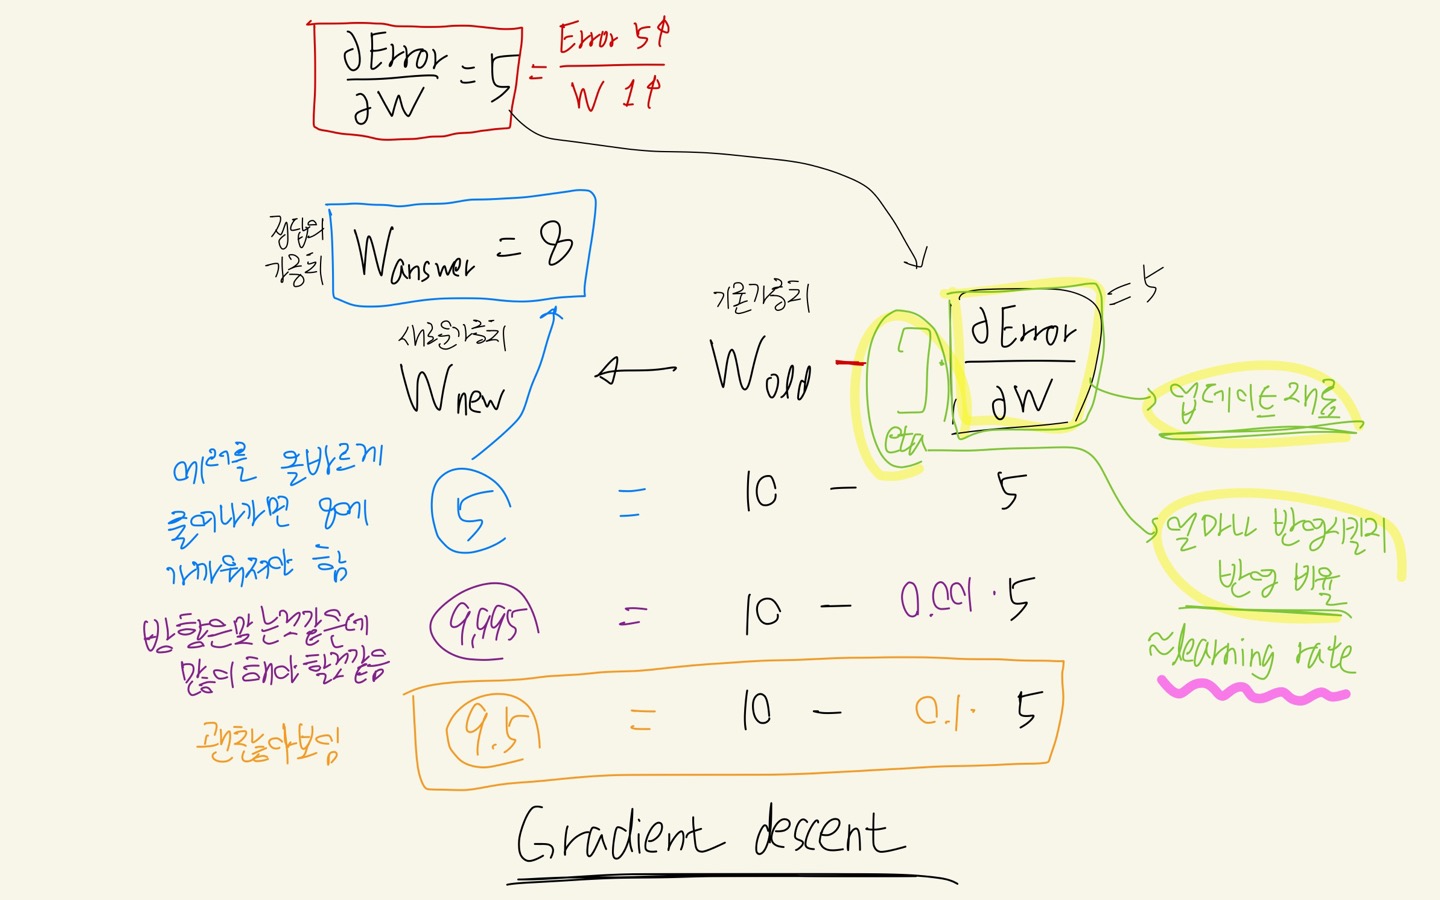 ∂Error/∂W = 5 = Error 5↑/W 1↑
정답의 가중치
W answer = 8
새로운가중치
W new
←
기존가중치
W old − eta · ∂Error/∂W = 5
업데이트 재료
에러를 올바르게
줄여나가면 8에
가까워져야 함
5 = 10 − 5
얼마나 반영시킬지
반영 비율
≈learning rate
방향은맞는것같은데
많이 해야 할것같음
9.995 = 10 − 0.001 · 5
괜찮아보임
9.5 = 10 − 0.1 · 5
Gradient descent